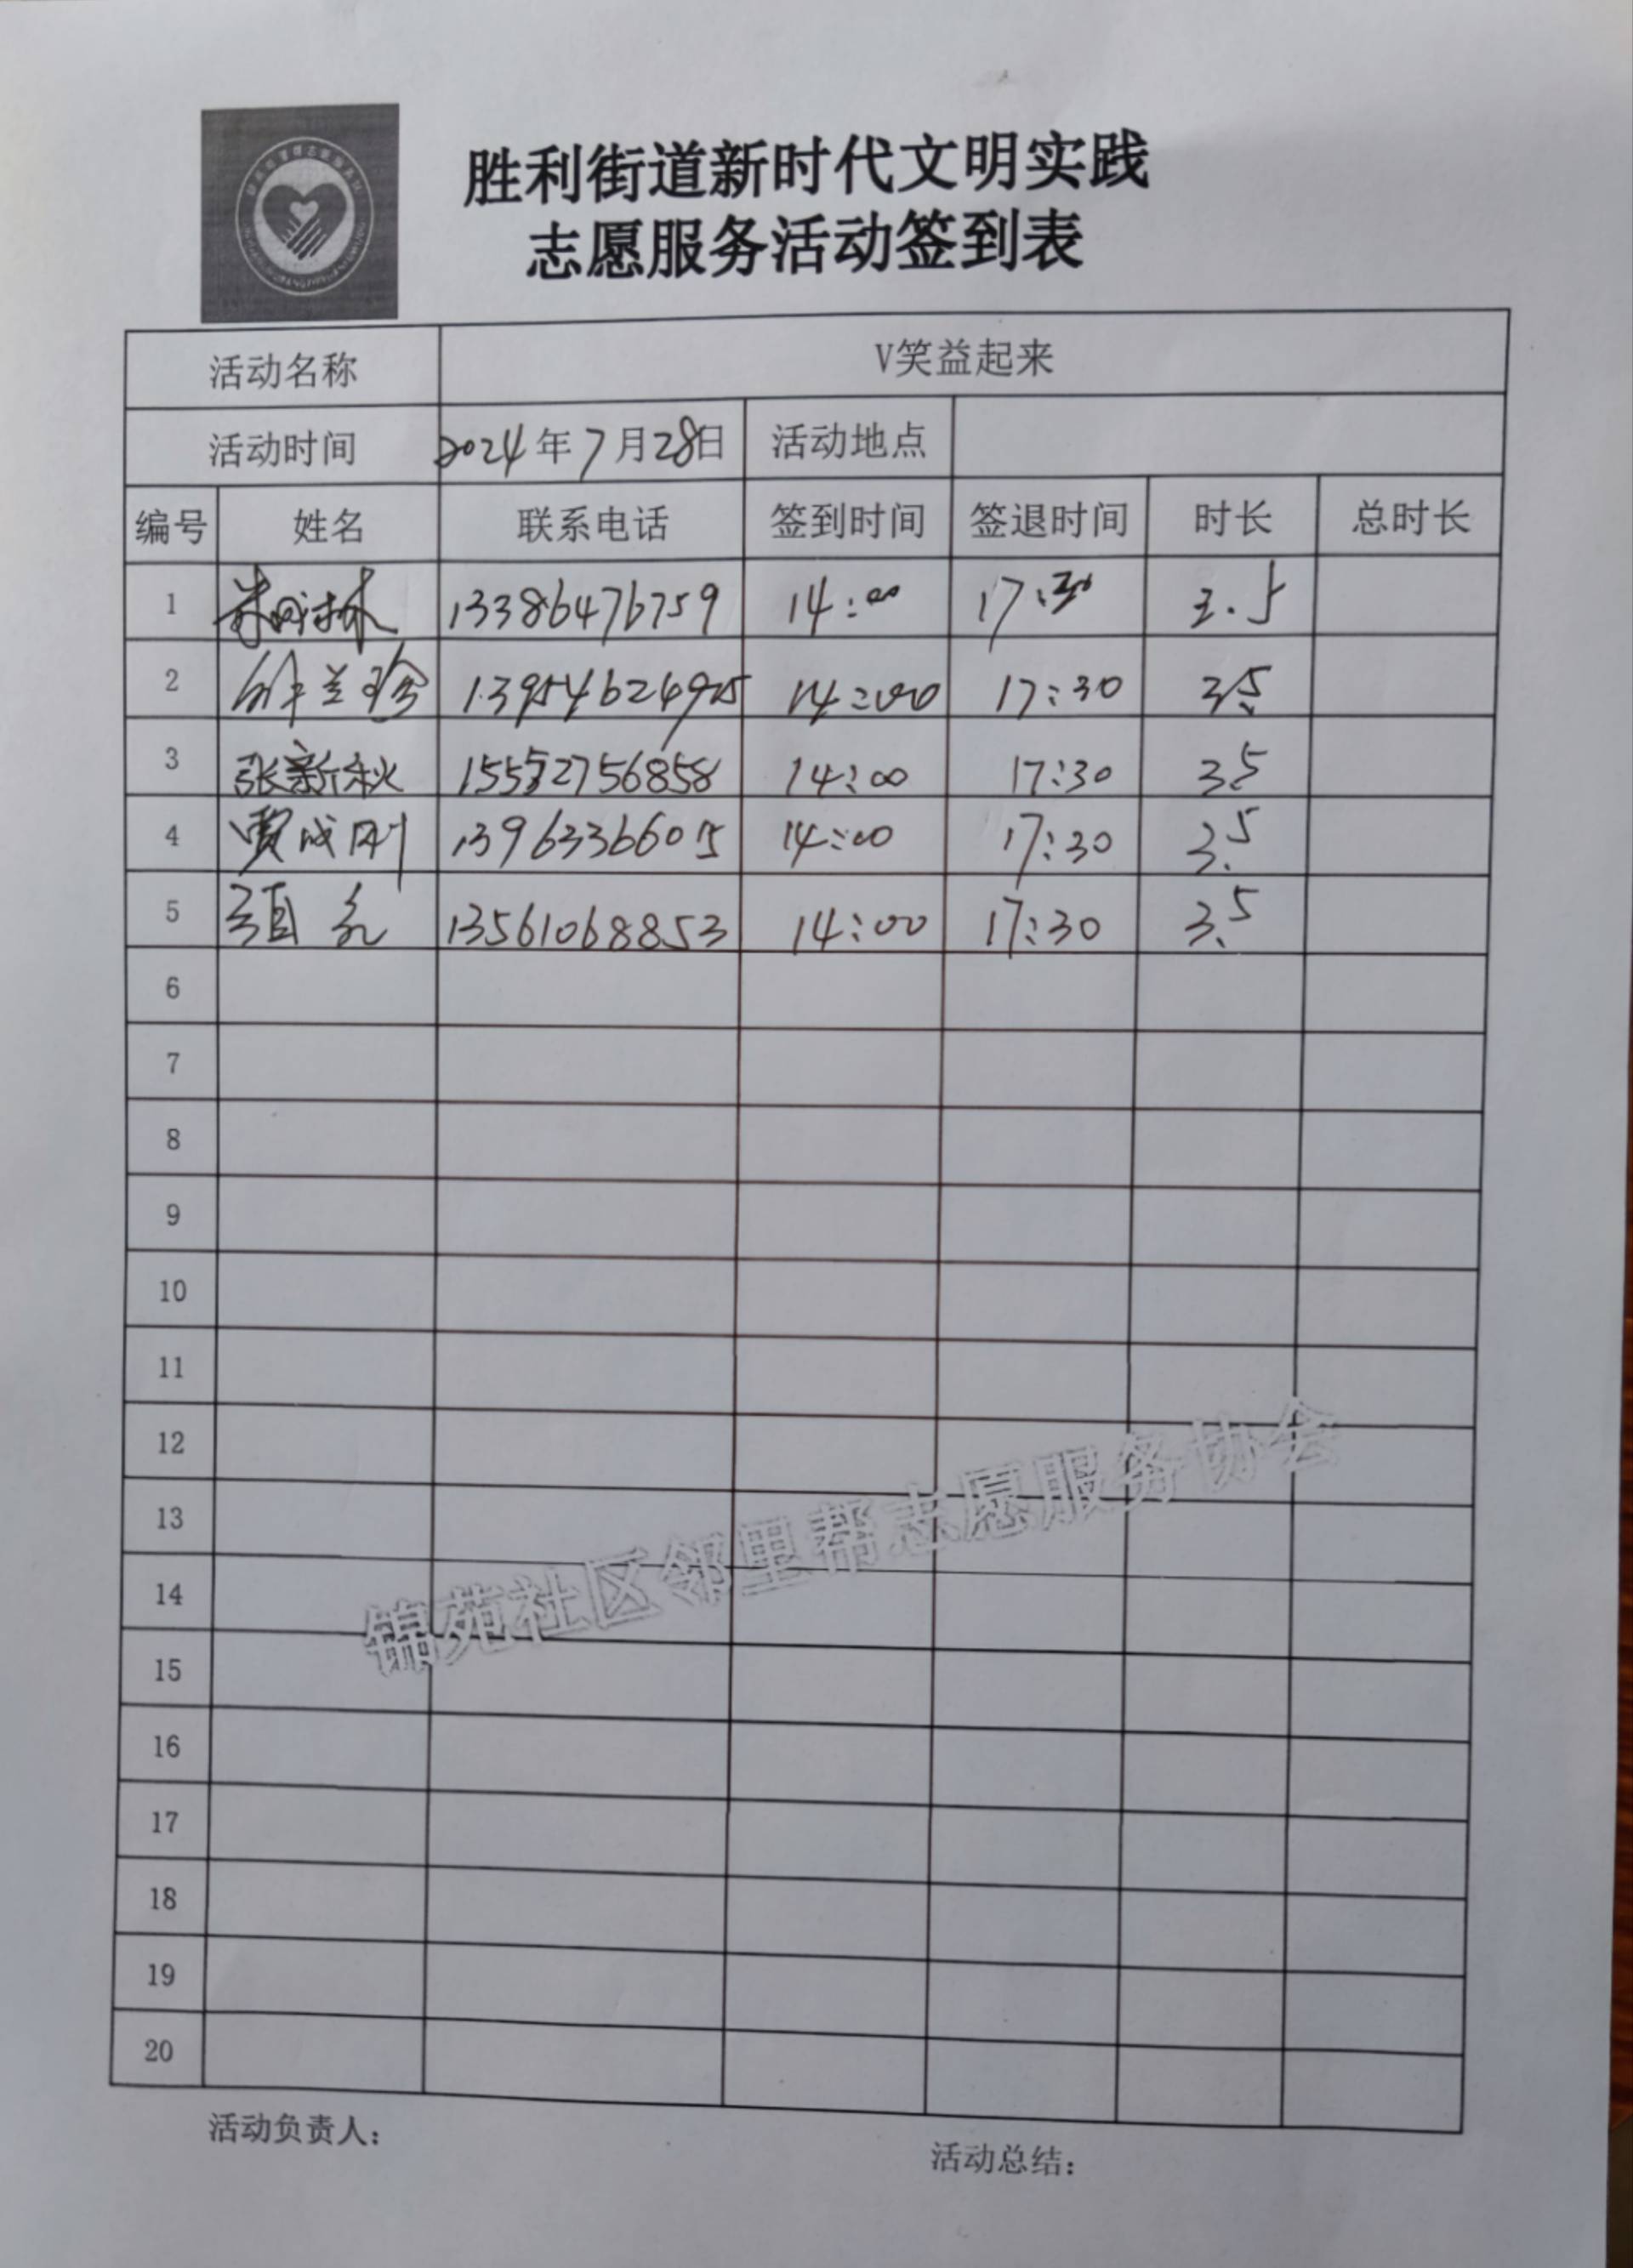 胜利街道新时代文明实践
志愿服务活动签到表
活动名称 V笑益起来
活动时间 2024年7月28日 活动地点
编号 姓名 联系电话 签到时间 签退时间 时长 总时长
1 13386476759 14:00 17:30 3.5
2 兰珍 13954624975 14:00 17:30 3.5
3 张新秋 15552756858 14:00 17:30 3.5
4 贾成刚 13963366015 14:00 17:30 3.5
5 13561068853 14:00 17:30 3.5
6
7
8
9
10
11
12
13
14
15
16
17
18
19
20
锦苑社区邻里帮志愿服务协会
活动负责人:
活动总结: